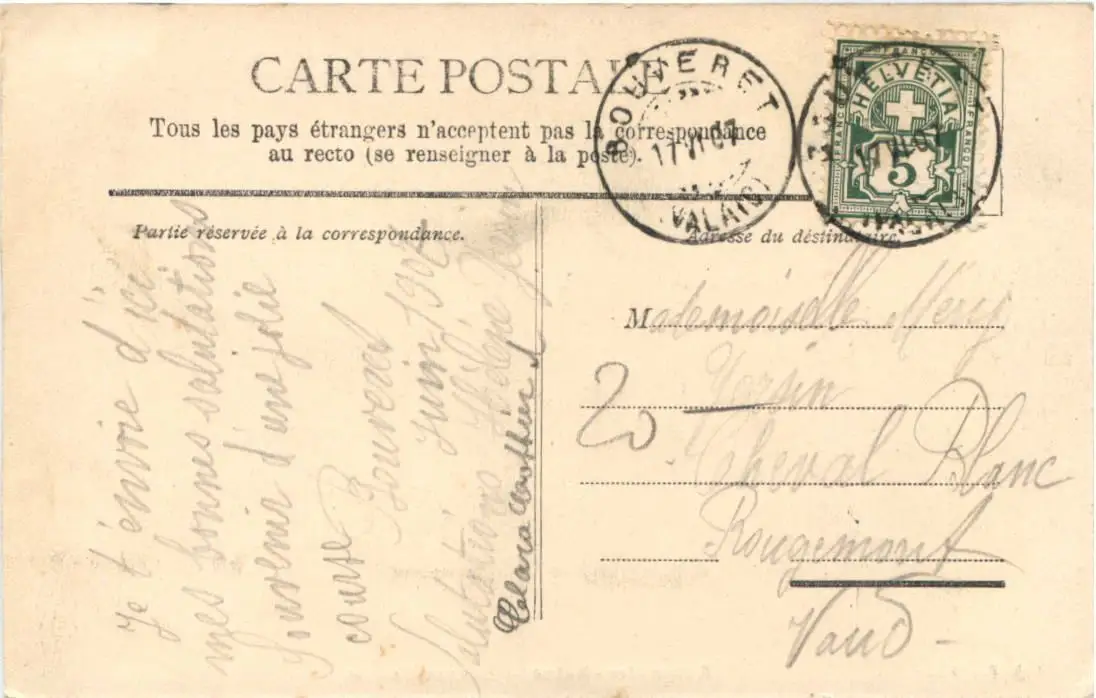 CARTE POSTALE
Tous les pays étrangers n'acceptent pas la correspondance
au recto (se renseigner à la poste).
BOUVERET
17 VI 07
(VALAIS)
FRANCO
HELVETIA
5
17 VI 07
Partie réservée à la correspondance.
Je t'envoie d'ici
mes bonnes salutations
Souvenir d'une jolie
course Bouveret
Juin 1907
Salutations
Adresse du destinataire.
Mademoiselle
20
Cheval Blanc
Rougemont
Vaud